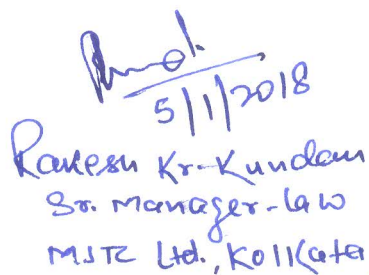 5/1/2018
Rakesh Kr. Kundan
Sr. Manager-law
MSTC Ltd., Kolkata